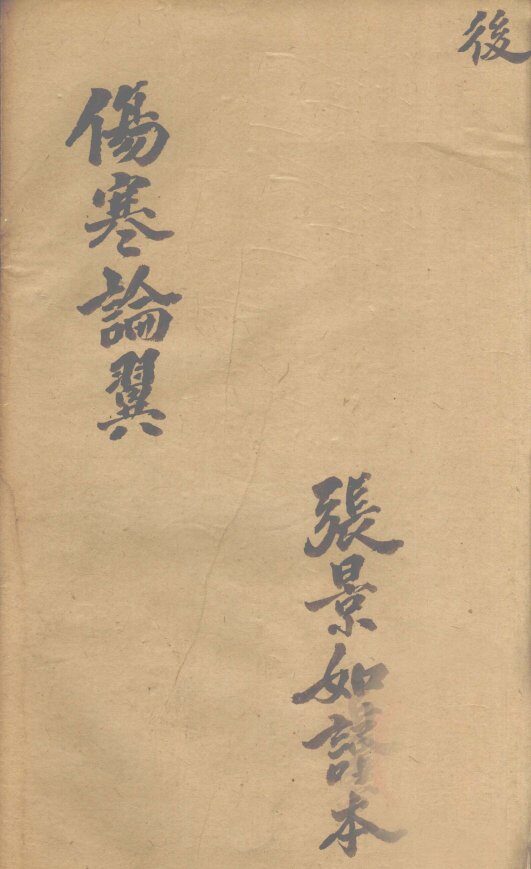 後
張景如讀本
傷寒論翼